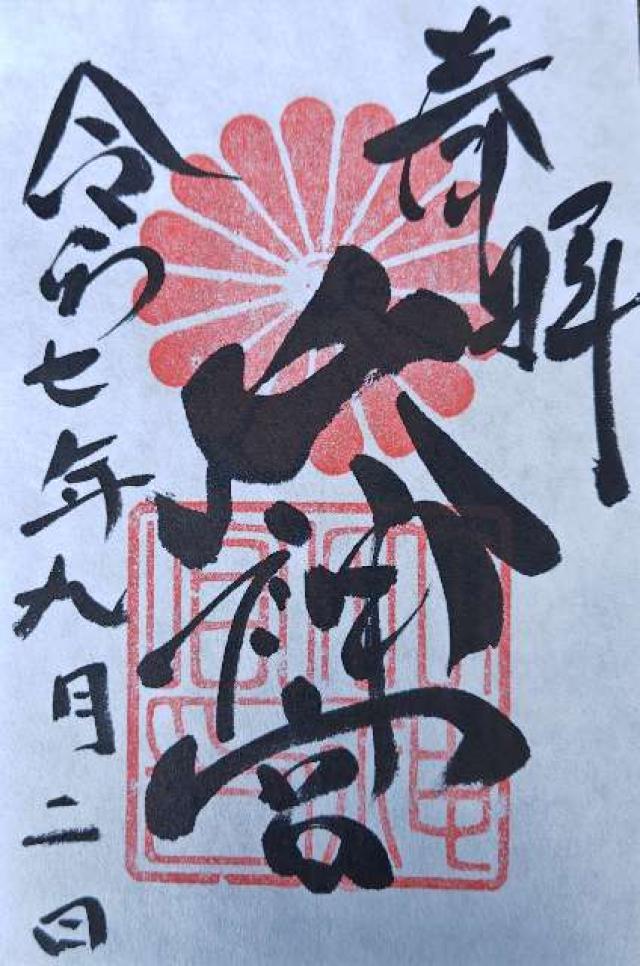 奉拝
大神宮
令和七年九月二日